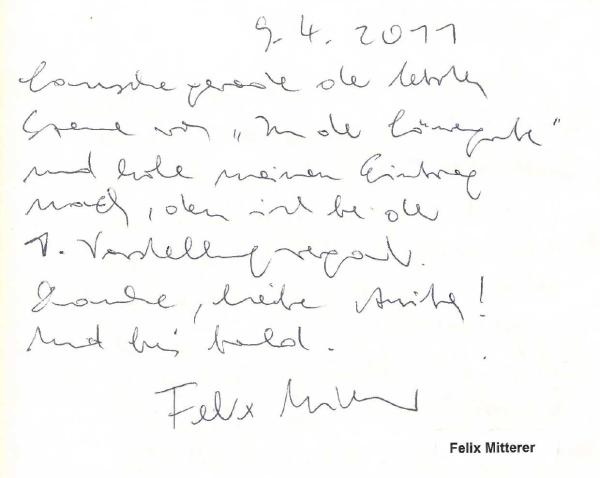 9. 4. 2011
Lausche gerade der letzten
Szene von „In der Löwengrube“
und hole meinen Eintrag
nach, den ich bei der
1. Vorstellung vergaß.
Danke, liebe Anita!
Und bis bald.
Felix Mitterer
Felix Mitterer